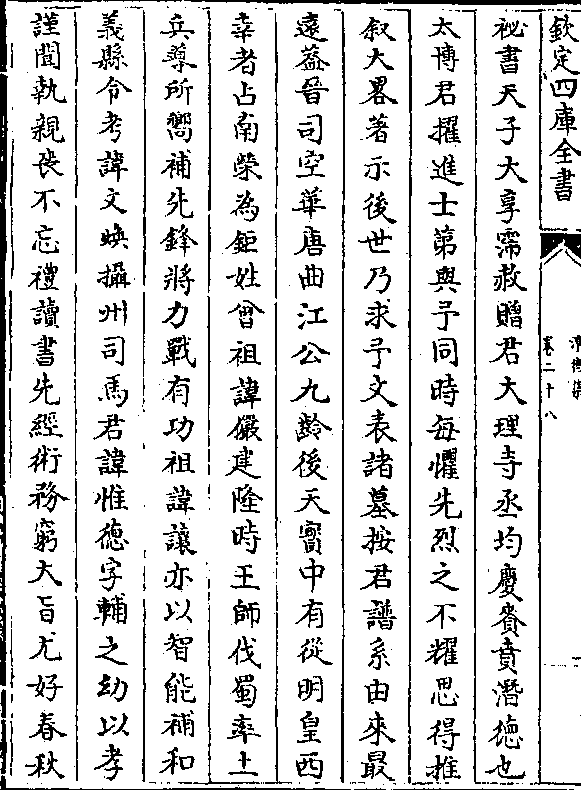 欽定四庫全書
卷二十八
祕書天子大享霈赦贈君大理寺丞均慶賚賁潛德也
太博君擢進士第與予同時每懼先烈之不耀思得推
叙大畧著示後世乃求予文表諸墓按君譜系由來最
遠蓋晉司空華唐曲江公九齡後天寳中有從明皇西
幸者占南榮為鉅姓曾祖諱儼建隆時王師伐蜀率土
兵導所嚮補先鋒將力戰有功祖諱讓亦以智能補和
義縣令考諱文煥攝州司馬君諱惟德字輔之幼以孝
謹聞執親喪不忘禮讀書先經術務窮大旨尤好春秋